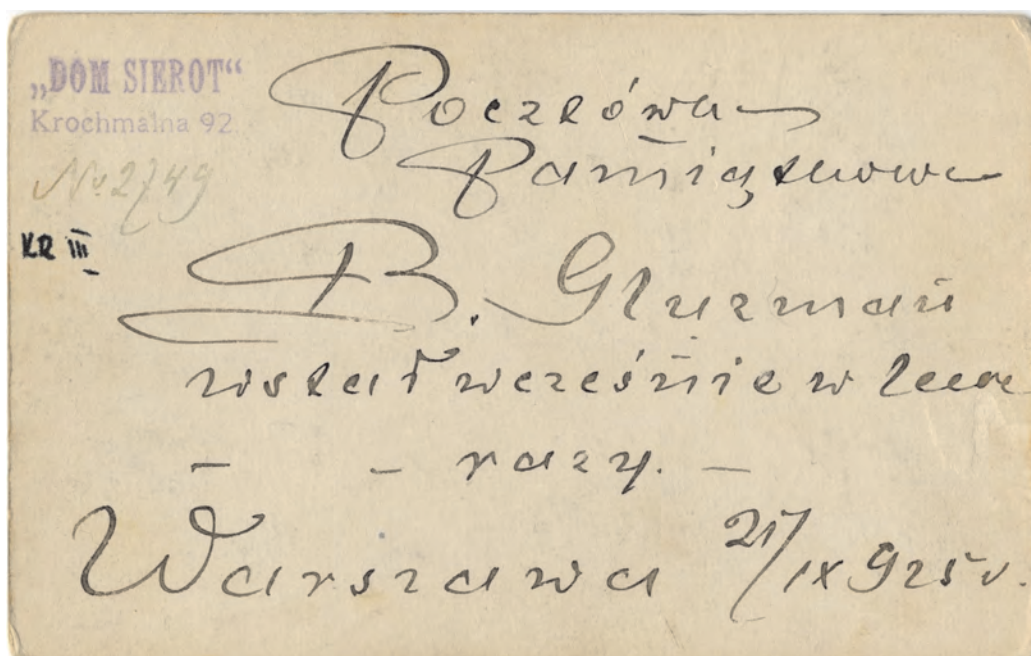 „DOM SIEROT“
Krochmalna 92.
№ 2749
KR III
Pocztówka
Pamiątkowa
B. Gluzman
wstał wcześnie w
— — razy. —
Warszawa 21/IX 925 r.